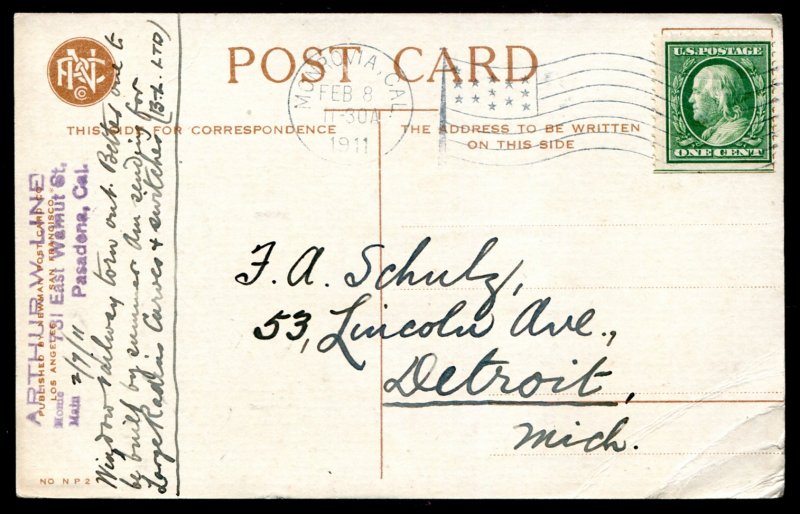 POST CARD
THIS SIDE FOR CORRESPONDENCE
THE ADDRESS TO BE WRITTEN
ON THIS SIDE
MONROVIA, CAL.
FEB 8
11-30A
1911
U.S. POSTAGE
ONE CENT
F. A. Schulz,
53, Lincoln Ave.,
Detroit,
Mich.
ARTHUR W. LINE
731 East Walnut St.
Pasadena, Cal.
Main
PUBLISHED BY NEWMAN POST CARD CO.
LOS ANGELES SAN FRANCISCO
2/7/11
Window railway torn out. Better one to
be built by summer. Am sending for
Large Radius Curves & switches (B-L. LTD)
NO N P 2